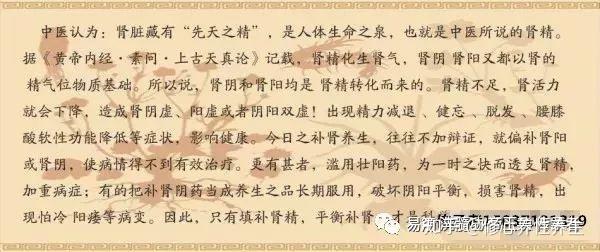 中医认为：肾脏藏有“先天之精”，是人体生命之泉，也就是中医所说的肾精。
据《黄帝内经·素问·上古天真论》记载，肾精化生肾气，肾阴 肾阳又都以肾的
精气位物质基础。所以说，肾阴和肾阳均是 肾精转化而来的。肾精不足，肾活力
就会下降，造成肾阴虚、阳虚或者阴阳双虚！出现精力减退 、健忘 、脱发 、腰膝
酸软性功能降低等症状，影响健康。今日之补肾养生，往往不加辩证，就偏补肾阳
或肾阴，使病情得不到有效治疗。更有甚者，滥用壮阳药，为一时之快而透支肾精，
加重病症；有的把补肾阴药当成养生之品长期服用，破坏阴阳平衡，损害肾精，出
现怕冷 阳痿等病变。因此，只有填补肾精，平衡补肾，才是科